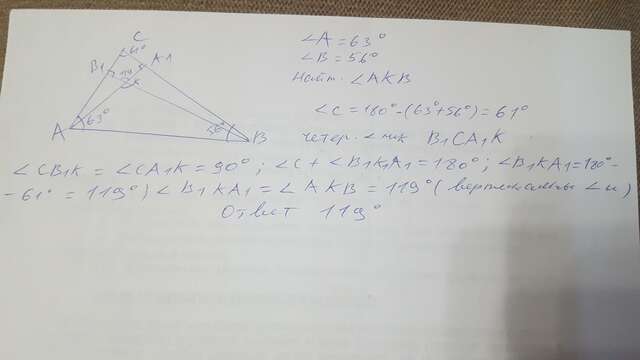 C
61°
B1
A1
119
K
A
63°
56°
B
∠A = 63°
∠B = 56°
Найт. ∠AKB
∠C = 180° - (63° + 56°) = 61°
четер. ∠ник B1CA1K
∠CB1K = ∠CA1K = 90°; ∠C + ∠B1K1A1 = 180°; ∠B1KA1 = 180° -
- 61° = 119°; ∠B1KA1 = ∠AKB = 119° (вертикальны ∠и)
Ответ 119°